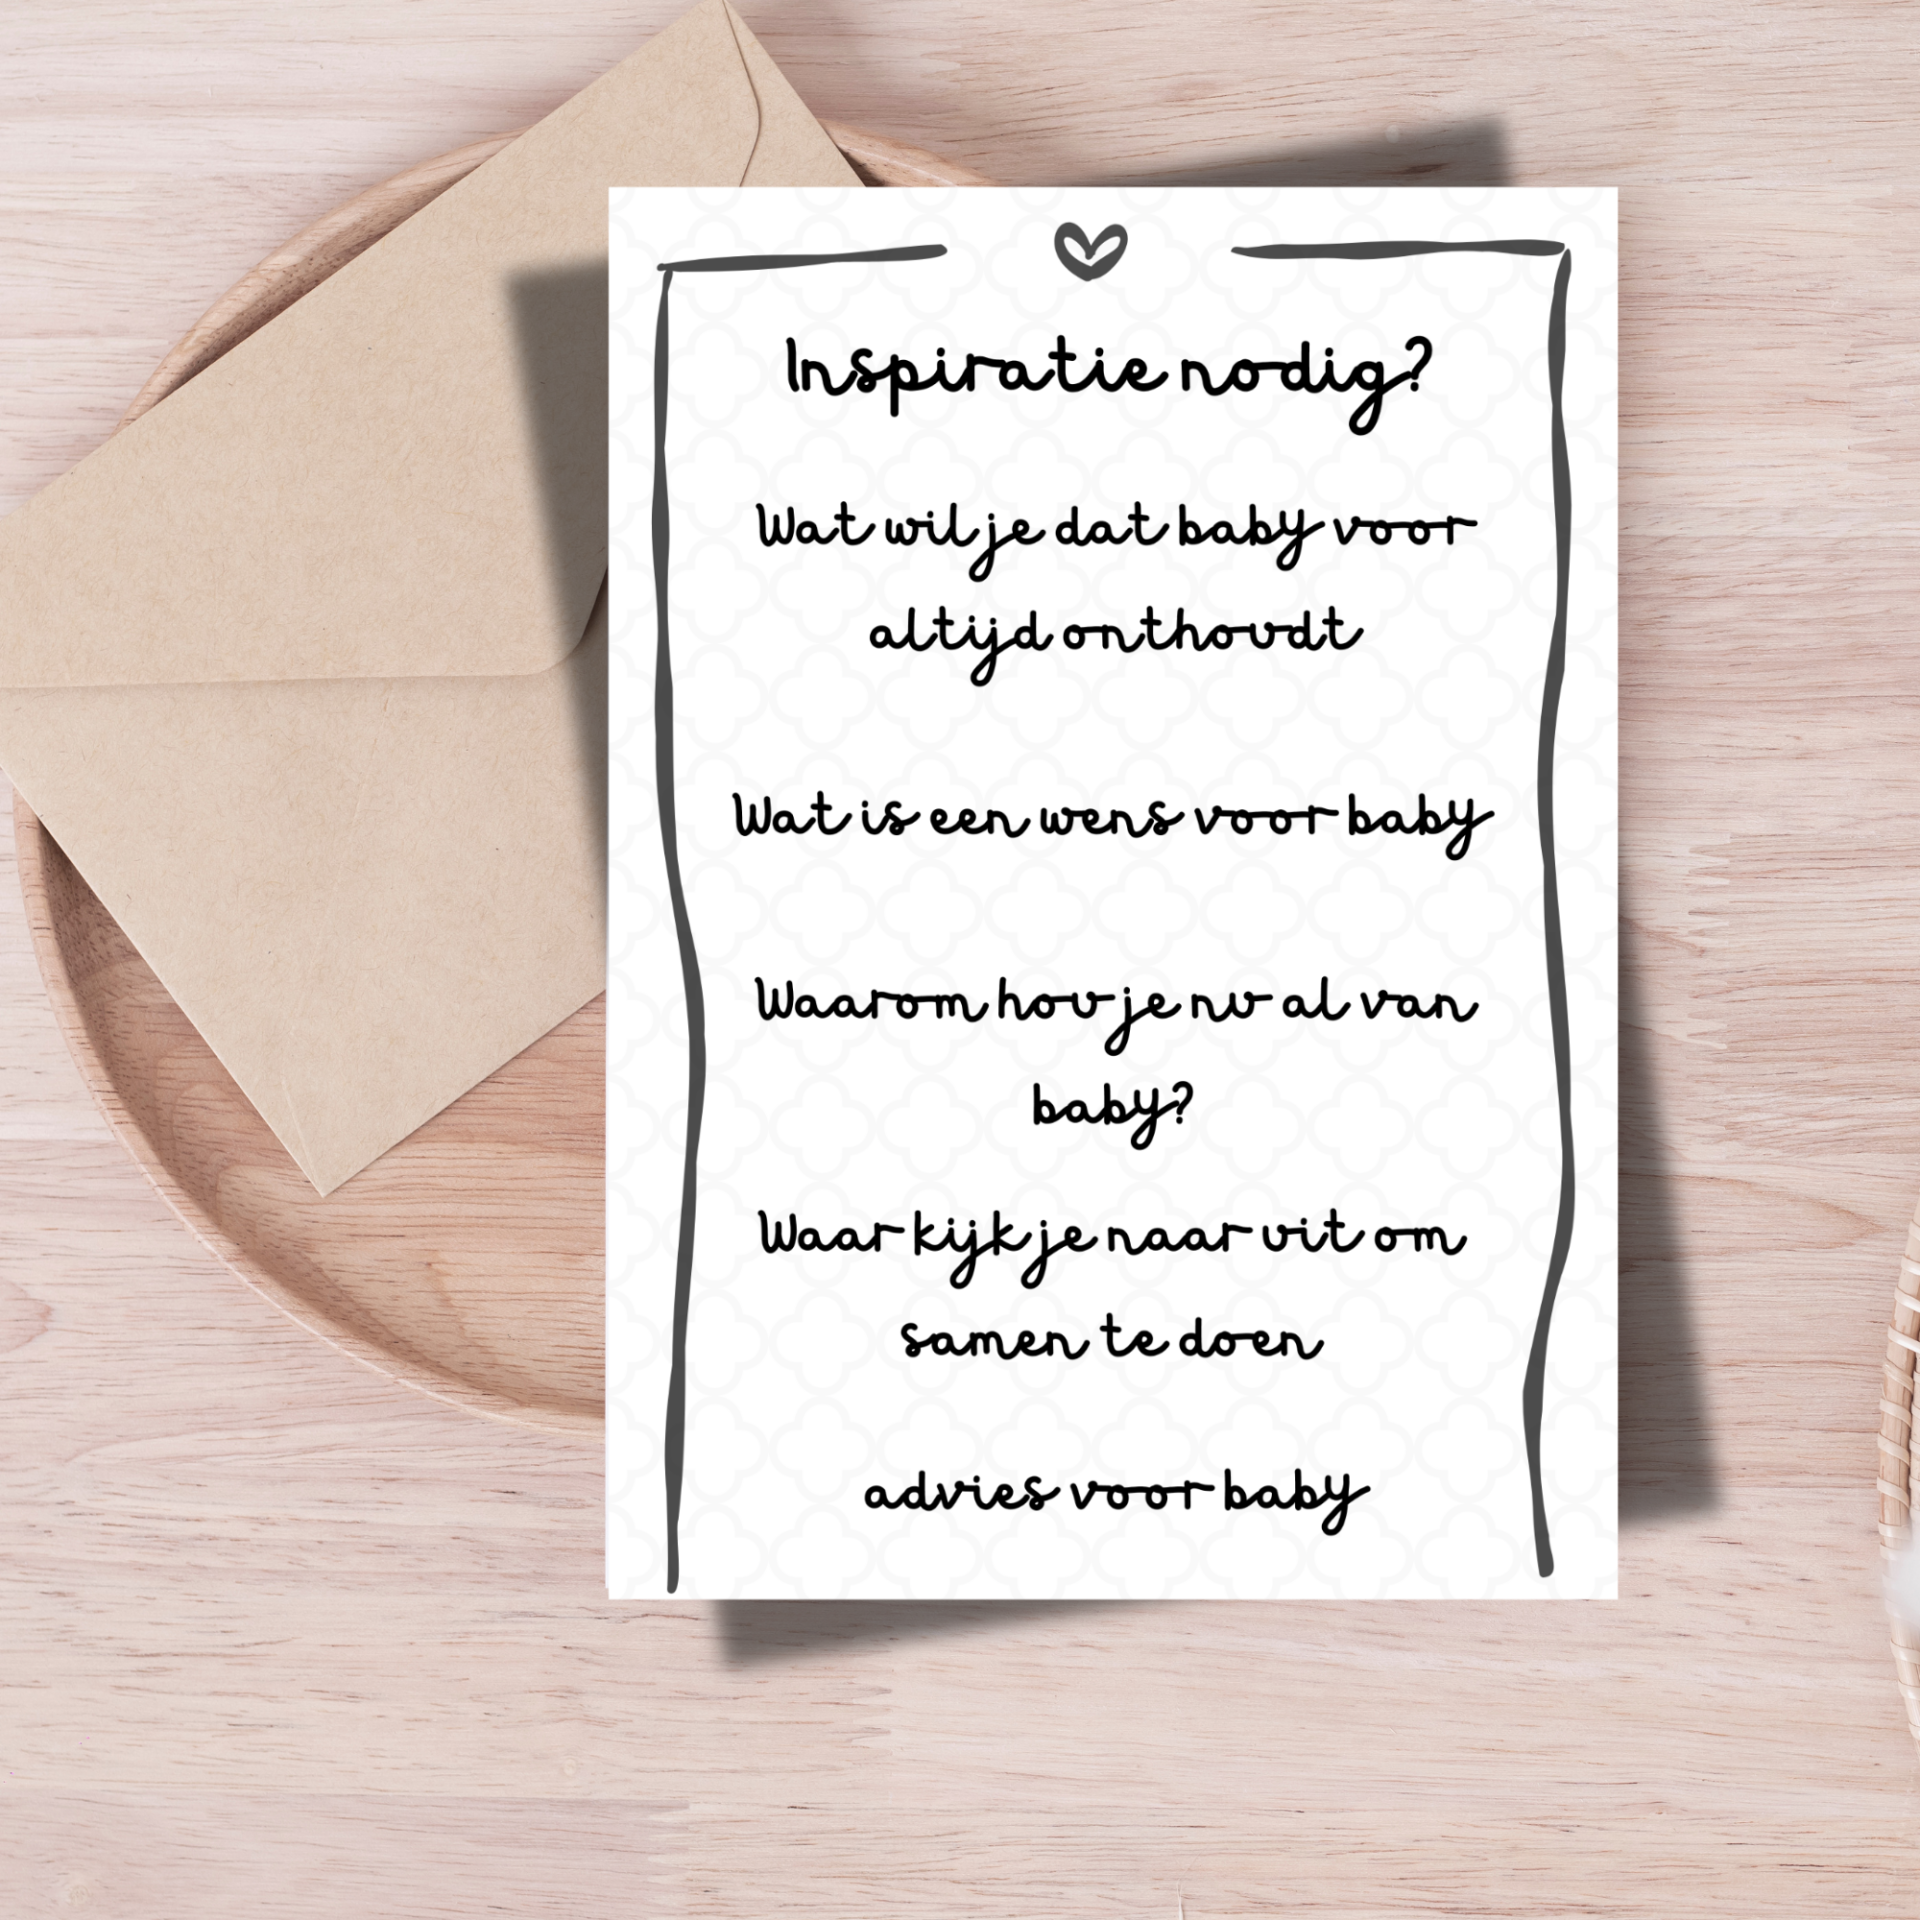 Inspiratie nodig?
Wat wil je dat baby voor
altijd onthoudt
Wat is een wens voor baby
Waarom hou je nu al van
baby?
Waar kijk je naar uit om
samen te doen
advies voor baby